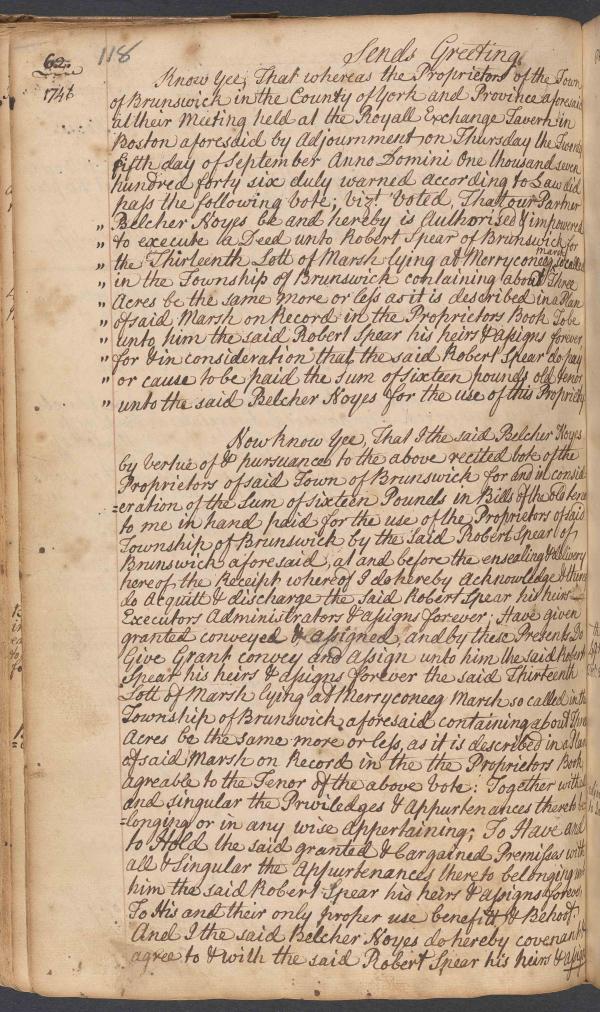 62. 118
1746
Sends Greeting
Know Yee, That whereas the Proprietors of the Town
of Brunswick in the County of York and Province aforesaid
at their Meeting held at the Royall Exchange Tavern in
Boston aforesaid by Adjournment, on Thursday the Twenty
Fifth day of September Anno Domini One thousand seven
hundred forty six duly warned according to Law did
pass the following Vote; Vizt. Voted, That our Partner
„ Belcher Noyes be and hereby is Authorised & impowered
„ to execute a Deed unto Robert Spear of Brunswick for
„ the Thirteenth Lott of Marsh lying at Merryconeeg marsh so called
„ in the Township of Brunswick containing about Three
„ Acres be the same more or less as it is described in a Plan
„ of said Marsh on Record in the Proprietors Book To be
„ unto him the said Robert Spear his heirs & assigns forever
„ for & in consideration that the said Robert Spear do pay
„ or cause to be paid the sum of sixteen pounds old tenor
„ unto the said Belcher Noyes for the use of this Propriety
Now Know Yee, That I the said Belcher Noyes
by Vertue of & pursuance to the above recited Vote of the
Proprietors of said Town of Brunswick for and in consid
=eration of the Sum of sixteen Pounds in Bills of the old tenor
to me in hand paid for the use of the Proprietors of said
Township of Brunswick by the Said Robert Spear of
Brunswick aforesaid, at and before the ensealing & delivery
hereof, the Receipt whereof I do hereby Acknowledge & thereof
do Acquitt & discharge the said Robert Spear his heirs
Executors Administrators & assigns forever; Have given
granted conveyed & assigned, and by these Presents Do
Give Grant convey and Assign unto him the said Robert
Spear his heirs & assigns forever the said Thirteenth
Lott of Marsh lying at Merryconeeg Marsh so called in the
Township of Brunswick aforesaid containing about Three
Acres be the same more or less, as it is described in a Plan
of said Marsh on Record in the the Proprietors Book
agreable to the Tenor of the above Vote: Together with all
and singular the Priviledges & Appurtenances thereto be
=longing or in any wise appertaining; To Have and
to Hold the said granted & bargained Premisses with
all & Singular the Appurtenances thereto belonging unto
him the said Robert Spear his heirs & assigns forever
To His and their only proper use benefitt & Behoof.
And I the said Belcher Noyes do hereby covenant &
agree to & with the said Robert Spear his heirs & assigns